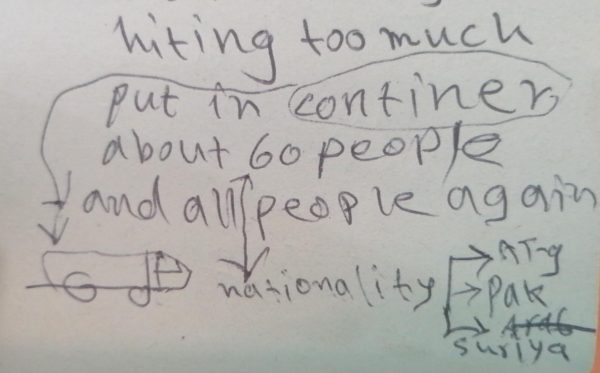 hiting too much
put in continer
about 60 people
and all people again
nationality
Pak
suriya